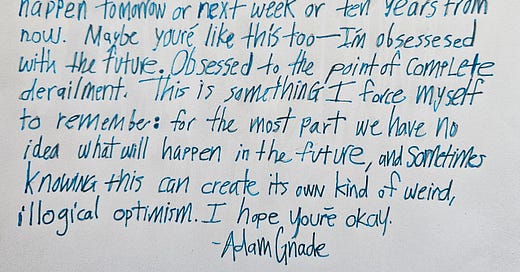 happen tomorrow or next week or ten years from
now. Maybe you're like this too—I'm obsessesed
with the future. Obsessed to the point of complete
derailment. This is something I force myself
to remember: for the most part we have no
idea what will happen in the future, and sometimes
knowing this can create its own kind of weird,
illogical optimism. I hope you're okay.
-Adam Gnade